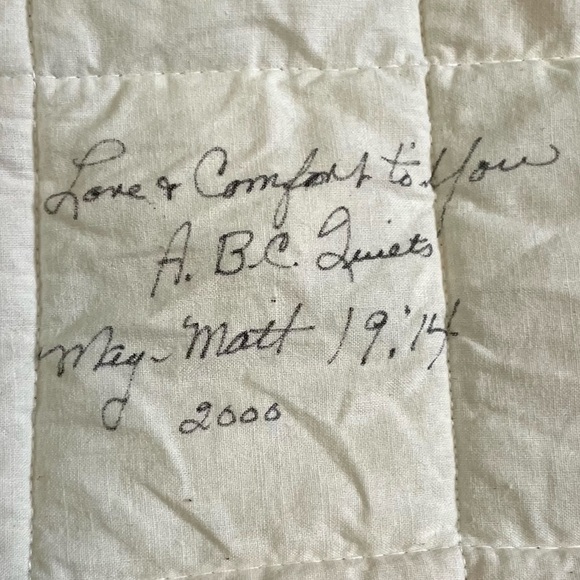 Love & Comfort to You
A.B.C. Quiets
May - Matt 19:14
2000